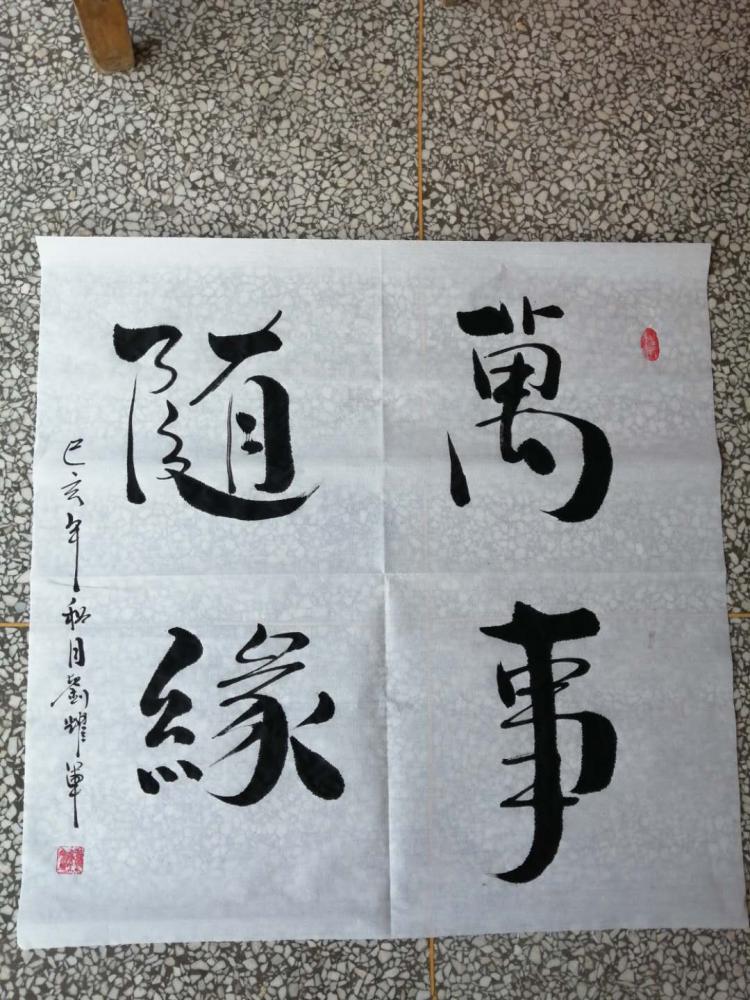 萬事
随緣
己亥年秋月劉耀軍